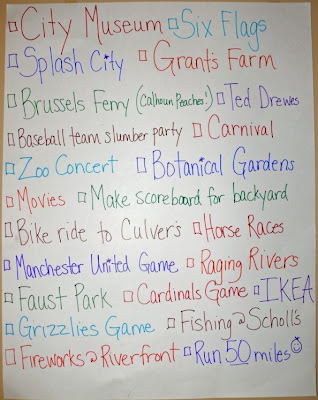 □ City Museum □ Six Flags
□ Splash City □ Grant's Farm
□ Brussels Ferry (Calhoun Peaches!) □ Ted Drewes
□ Baseball team slumber party □ Carnival
□ Zoo Concert □ Botanical Gardens
□ Movies □ Make scoreboard for backyard
□ Bike ride to Culver's □ Horse Races
□ Manchester United Game □ Raging Rivers
□ Faust Park □ Cardinals Game □ IKEA
□ Grizzlies Game □ Fishing @ Scholl's
□ Fireworks @ Riverfront □ Run 50 miles☺